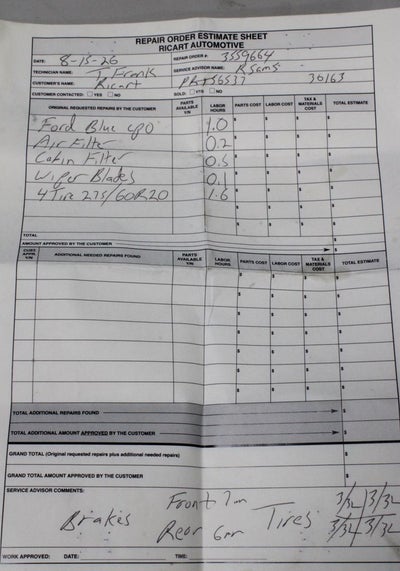 REPAIR ORDER ESTIMATE SHEET
RICART AUTOMOTIVE
DATE: 8-15-26 REPAIR ORDER #: 3559664
TECHNICIAN NAME: T Frank SERVICE ADVISOR NAME: RSams
CUSTOMER'S NAME: Ricart PRT56537 30163
CUSTOMER CONTACTED: YES NO SOLD: YES NO
ORIGINAL REQUESTED REPAIRS BY THE CUSTOMER PARTS AVAILABLE Y/N LABOR HOURS PARTS COST LABOR COST TAX & MATERIALS COST TOTAL ESTIMATE
Ford Blue CPO 1.0 $ $ $ $
Air Filter 0.2 $ $ $ $
Cabin Filter 0.5 $ $ $ $
Wiper Blades 0.1 $ $ $ $
4 Tire 275/60R20 1.6 $ $ $ $
TOTAL
AMOUNT APPROVED BY THE CUSTOMER $
CUST. APPR. Y/N ADDITIONAL NEEDED REPAIRS FOUND PARTS AVAILABLE Y/N LABOR HOURS PARTS COST LABOR COST TAX & MATERIALS COST TOTAL ESTIMATE
TOTAL ADDITIONAL REPAIRS FOUND $
TOTAL ADDITIONAL AMOUNT APPROVED BY THE CUSTOMER $
GRAND TOTAL (Original requested repairs plus additional needed repairs) $
GRAND TOTAL AMOUNT APPROVED BY THE CUSTOMER $
SERVICE ADVISOR COMMENTS:
Brakes Front 7m Tires 3/32 3/32
Rear 6m 3/32 3/32
WORK APPROVED: DATE: TIME: